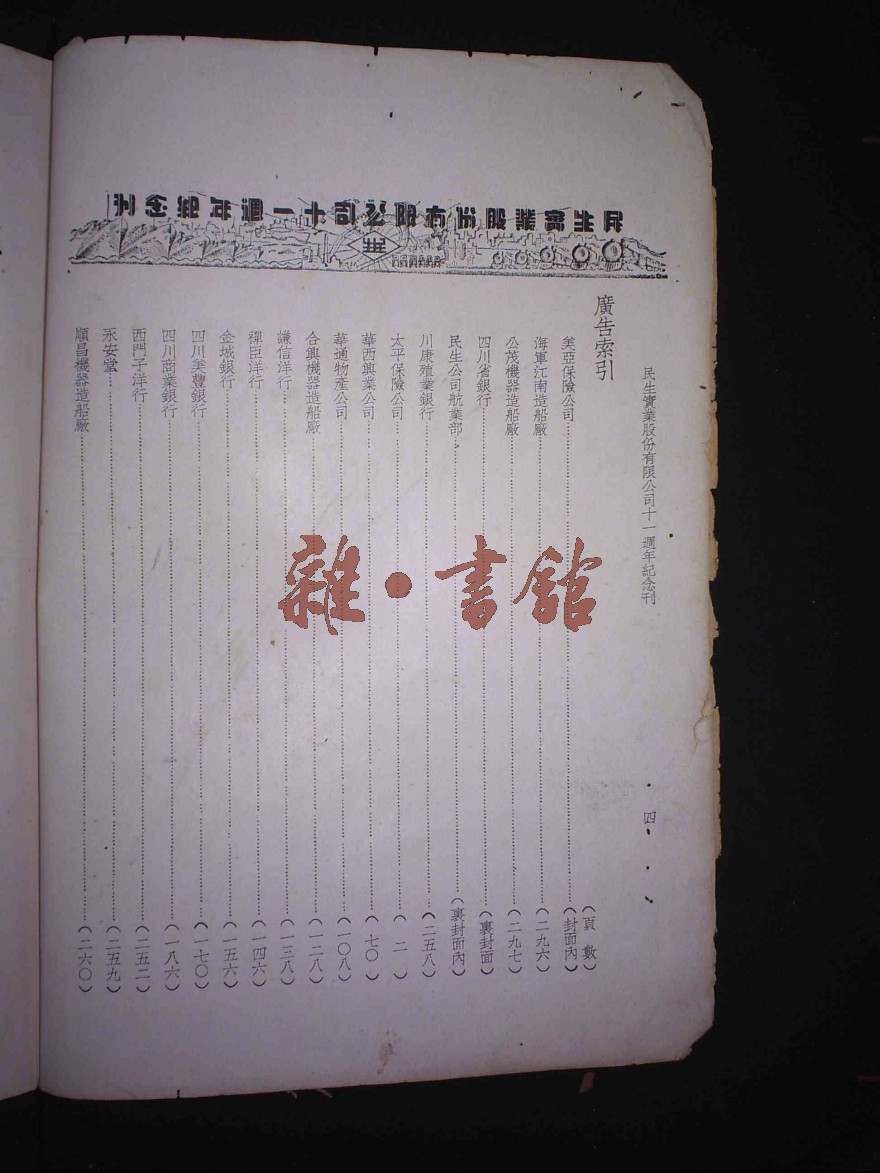 民生實業股份有限公司十一週年紀念刊
民生實業股份有限公司十一週年紀念刊
四
廣告索引
(頁數)
美亞保險公司……(封面內)
海軍江南造船廠……(二九六)
公茂機器造船廠……(二九七)
四川省銀行……(裏封面)
民生公司航業部……(裏封面內)
川康殖業銀行……(二五八)
太平保險公司……(二)
華西興業公司……(七〇)
華通物產公司……(一〇八)
合興機器造船廠……(一二八)
謙信洋行……(一三八)
禪臣洋行……(一四六)
金城銀行……(一五六)
四川美豐銀行……(一七〇)
四川商業銀行……(一八六)
西門子洋行……(二五二)
永安堂……(二五九)
順昌機器造船廠……(二六〇)
雜·書館